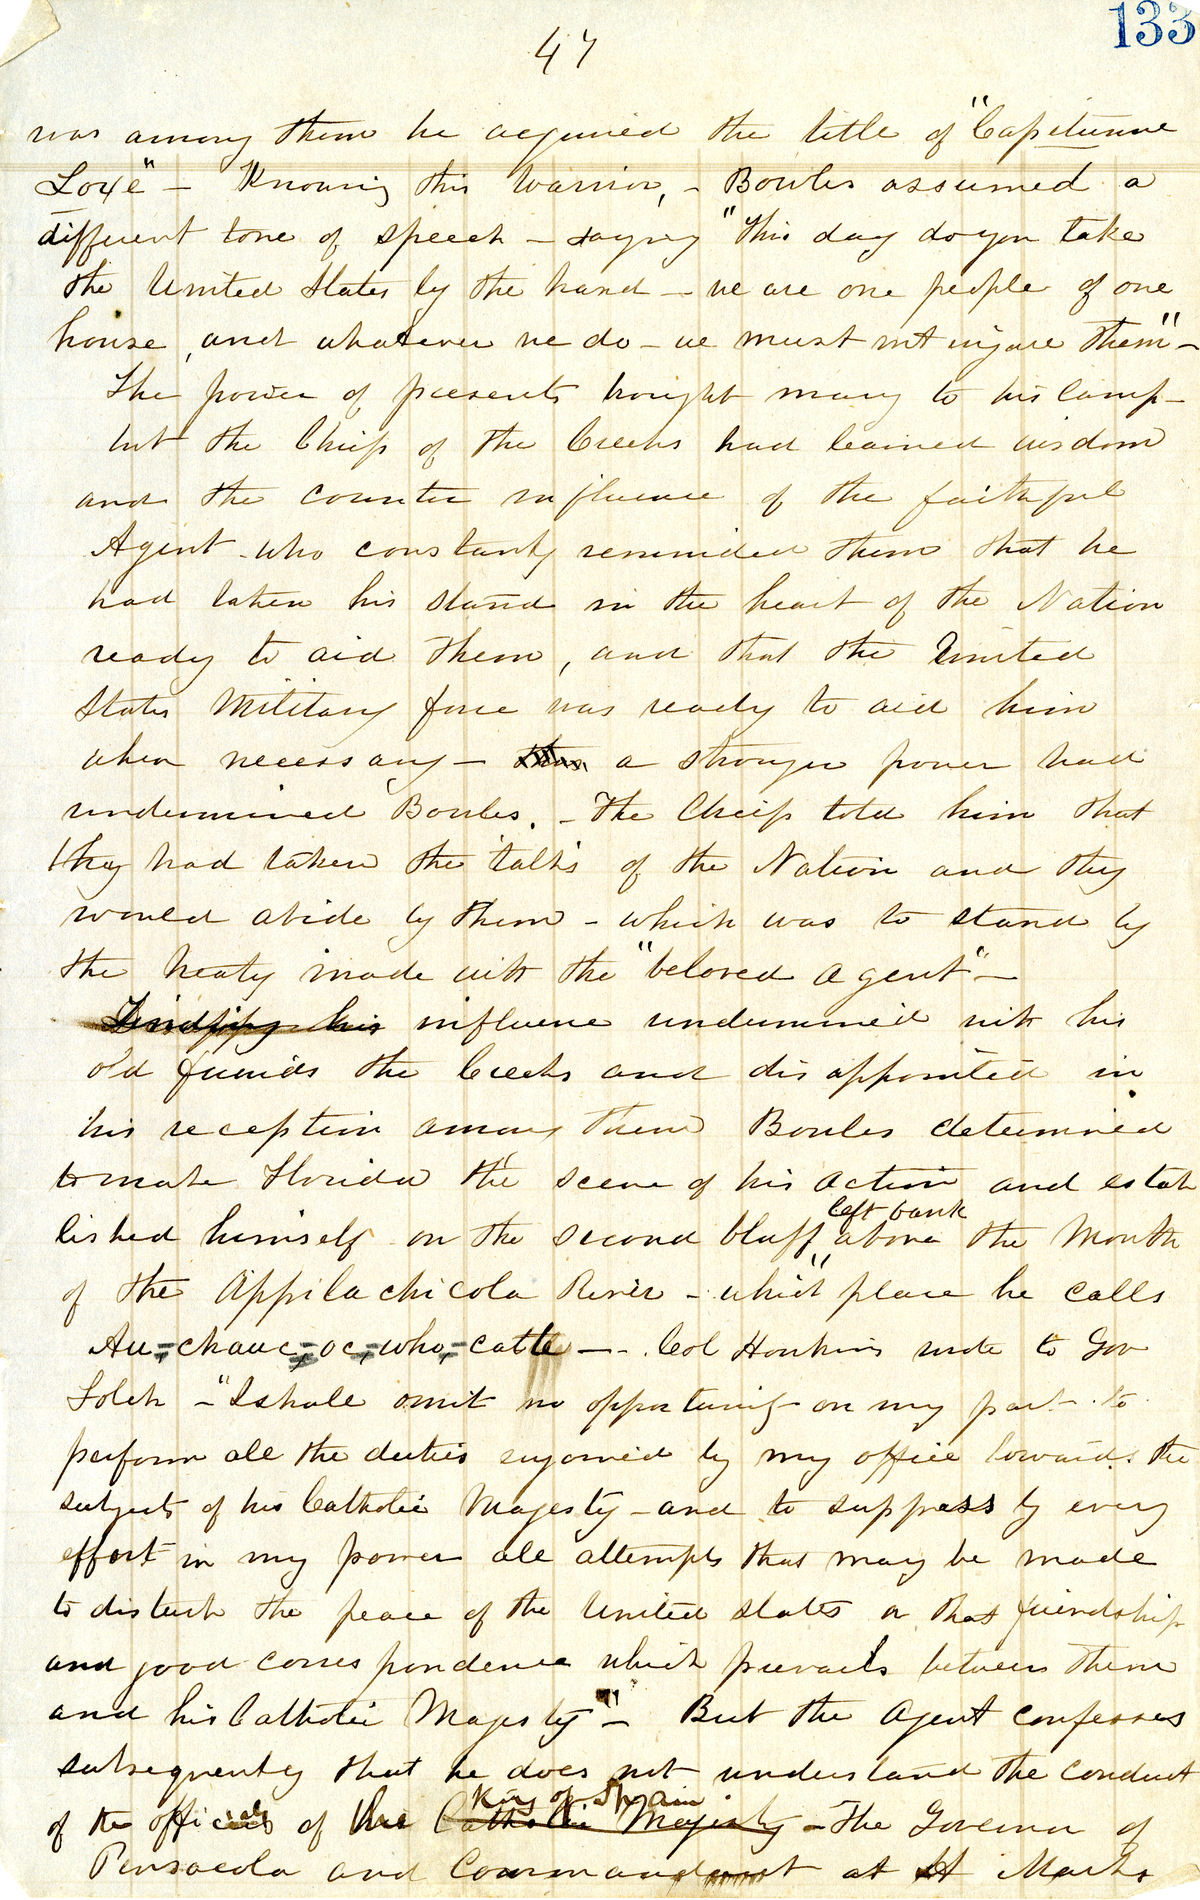 133
47
was among them he acquired the title of "Capitunne
Loxe" - Knowing this Warrior, - Bowles assumed a
different tone of speech - saying "This day do you take
the United States by the hand - we are one people of one
house, and whatever we do - we must not injure them" -
The power of presents bought many to his Camp -
but the Chiefs of the Creeks had learned wisdom
and the counter influence of the faithful
Agent who constantly reminded them that he
had taken his stand in the heart of the Nation
ready to aid them, and that the United
States Military force was ready to aid him
when necessary - a stronger power had
undermined Bowles. - The Chiefs told him that
they had taken the talks of the Nation and they
would abide by them - which was to stand by
the treaty made with the "beloved agent" -
his influence undermined with his
old friends the Creeks and disappointed in
his reception among them Bowles determined
to make Florida the scene of his action and estab
left bank
lished himself on the second bluff above the Mouth
of the Appilachicola River - which place he calls
Au-chauc-oc-who-catte - Col Hawkins wrote to Gov
Folch - "I shall omit no opportunity on my part to
perform all the duties enjoined by my office towards the
subjects of his Catholic Majesty - and to suppress by every
effort in my power all attempts that may be made
to disturb the peace of the United States or that friendship
and good correspondence which prevails between them
and his Catholic Majesty" - But the Agent confesses
subsequently that he does not understand the conduct
King of Spain
of the officials of the Catholic Majesty - The Governor of
Pensacola and Commandant at St Marks